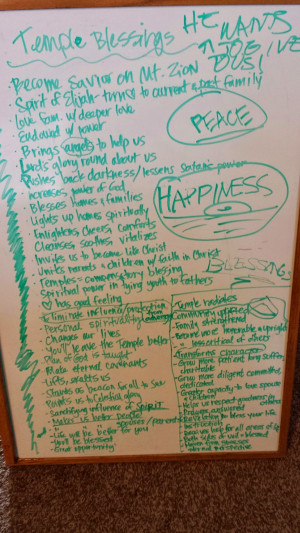 Temple Blessings
HE
WANTS
JOE
Become Savior on Mt. Zion
Spirit of Elijah - turns to current & past family
Love from w/ deeper love
Endowed w/ power
Brings angels to help us
Lord's glory round about us
Pushes back darkness/lessens Satanic power
Increases power of God
Blesses homes & families
Lights up homes spiritually
Enlightens, cheers, comforts
Cleanses, soothes, vitalizes
Invites us to become like Christ
Unites parents & children w/ faith in Christ
Temples = compensatory blessing
Spiritual power in tying youth to fathers
PEACE
HAPPINESS
BLESSING
♡ has good feeling
Eliminate influence/protection
Personal spirituality
Changes our lives
You'll leave the Temple better
Plan of God is taught
Make eternal covenants
Lifts, exalts us
Stands as beacon for all to see
Points us to Celestial glory
Sanctifying influence of SPIRIT
Makes us better people
spouses/parents
Life will be better for you
You'll be blessed
Great opportunity
Temple
Community uplifted
Family strengthened
Become more honorable & upright
less critical of others
Transforms character
Grow more patient, long suffering
charitable
Grow more diligent, committed
dedicated
Greater capacity to love spouse
& children
Help us respect goodness in
others
to bless your life
help for all areas of life
Both sides of veil = blessed
eternal perspective